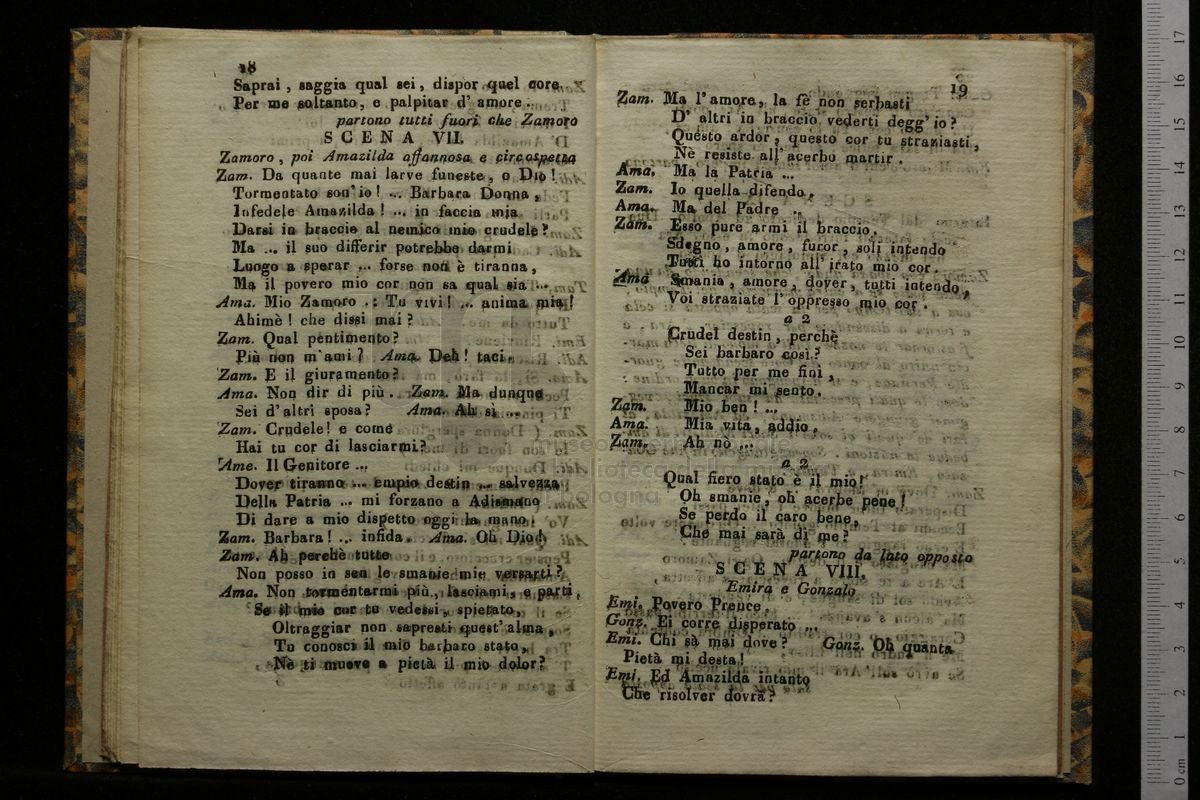 18
Saprai, saggia qual sei, dispor quel core
Per me soltanto, e palpitar d' amore.
partono tutti fuori che Zamoro
SCENA VII.
Zamoro, poi Amazilda affannosa e circospetta
Zam. Da quante mai larve funeste, o Dio!
Tormentato son' io! ... Barbara Donna,
Infedele Amazilda! ... in faccia mia
Darsi in braccio al nemico mio crudele?
Ma ... il suo differir potrebbe darmi
Luogo a sperar ... forse non è tiranna,
Ma il povero mio cor non sa qual sia ...
Ama. Mio Zamoro .: Tu vivi! ... anima mia!
Ahimè! che dissi mai?
Zam. Qual pentimento?
Più non m'ami? Ama. Deh! taci.
Zam. E il giuramento?
Ama. Non dir di più. Zam. Ma dunque
Sei d'altri sposa? Ama. Ah sì ...
Zam. Crudele! e come
Hai tu cor di lasciarmi?
Ame. Il Genitore ...
Dover tiranno ... empio destin ... salvezza
Della Patria ... mi forzano a Adismano
Di dare a mio dispetto oggi la mano.
Zam. Barbara! ... infida. Ama. Oh Dio!
Zam. Ah perchè tutte
Non posso in sen le smanie mie versarti?
Ama. Non tormentarmi più, lasciami, e parti,
Se il mio cor tu vedessi, spietato,
Oltraggiar non sapresti quest' alma,
Tu conosci il mio barbaro stato,
Nè ti muove a pietà il mio dolor?
19
Zam. Ma l'amore, la fè non serbasti
D' altri in braccio vederti degg' io?
Questo ardor, questo cor tu straziasti,
Nè resiste all' acerbo martir.
Ama. Ma la Patria ...
Zam. Io quella difendo.
Ama. Ma del Padre ...
Zam. Esso pure armi il braccio.
Sdegno, amore, furor, soli intendo
Tutti ho intorno all' irato mio cor.
Ama Smania, amore, dover, tutti intendo,
Voi straziate l'oppresso mio cor.
a 2
Crudel destin, perchè
Sei barbaro così?
Tutto per me finì,
Mancar mi sento.
Zam. Mio ben! ...
Ama. Mia vita, addio.
Zam. Ah nò ...
a 2
Qual fiero stato è il mio!
Oh smanie, oh acerbe pene!
Se perdo il caro bene,
Che mai sarà di me?
partono da lato opposto
SCENA VIII.
Emira e Gonzalo
Emi. Povero Prence.
Gonz. Ei corre disperato ...
Emi. Chi sà mai dove? Gonz. Oh quanta
Pietà mi desta!
Emi. Ed Amazilda intanto
Che risolver dovrà?